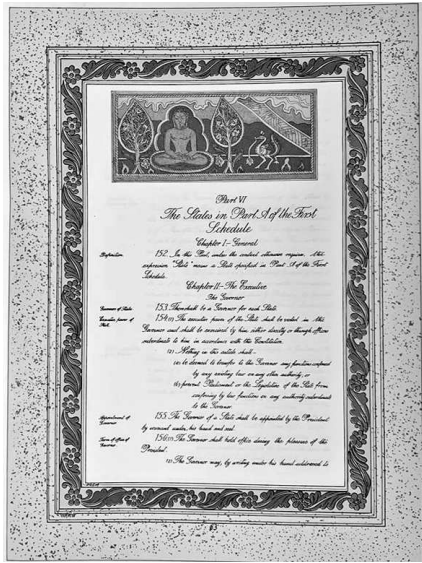 Part VI
The States in Part A of the First
Schedule
Chapter I—General
Definition. 152. In this Part, unless the context otherwise requires, the
expression "State" means a State specified in Part A of the First
Schedule.
Chapter II—The Executive
The Governor
Governors of States. 153. There shall be a Governor for each State.
Executive power of State. 154.(1) The executive power of the State shall be vested in the
Governor and shall be exercised by him either directly or through officers
subordinate to him in accordance with this Constitution.
(2) Nothing in this article shall—
(a) be deemed to transfer to the Governor any functions conferred
by any existing law on any other authority; or
(b) prevent Parliament or the Legislature of the State from
conferring by law functions on any authority subordinate
to the Governor.
Appointment of Governor. 155. The Governor of a State shall be appointed by the President
by warrant under his hand and seal.
Term of office of Governor. 156.(1) The Governor shall hold office during the pleasure of the
President.
(2) The Governor may, by writing under his hand addressed to